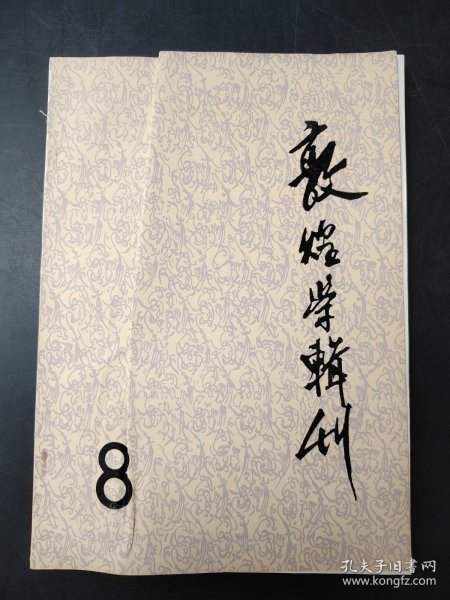 敦煌学輯刊
8
孔夫子旧书网
www.kongfz.com